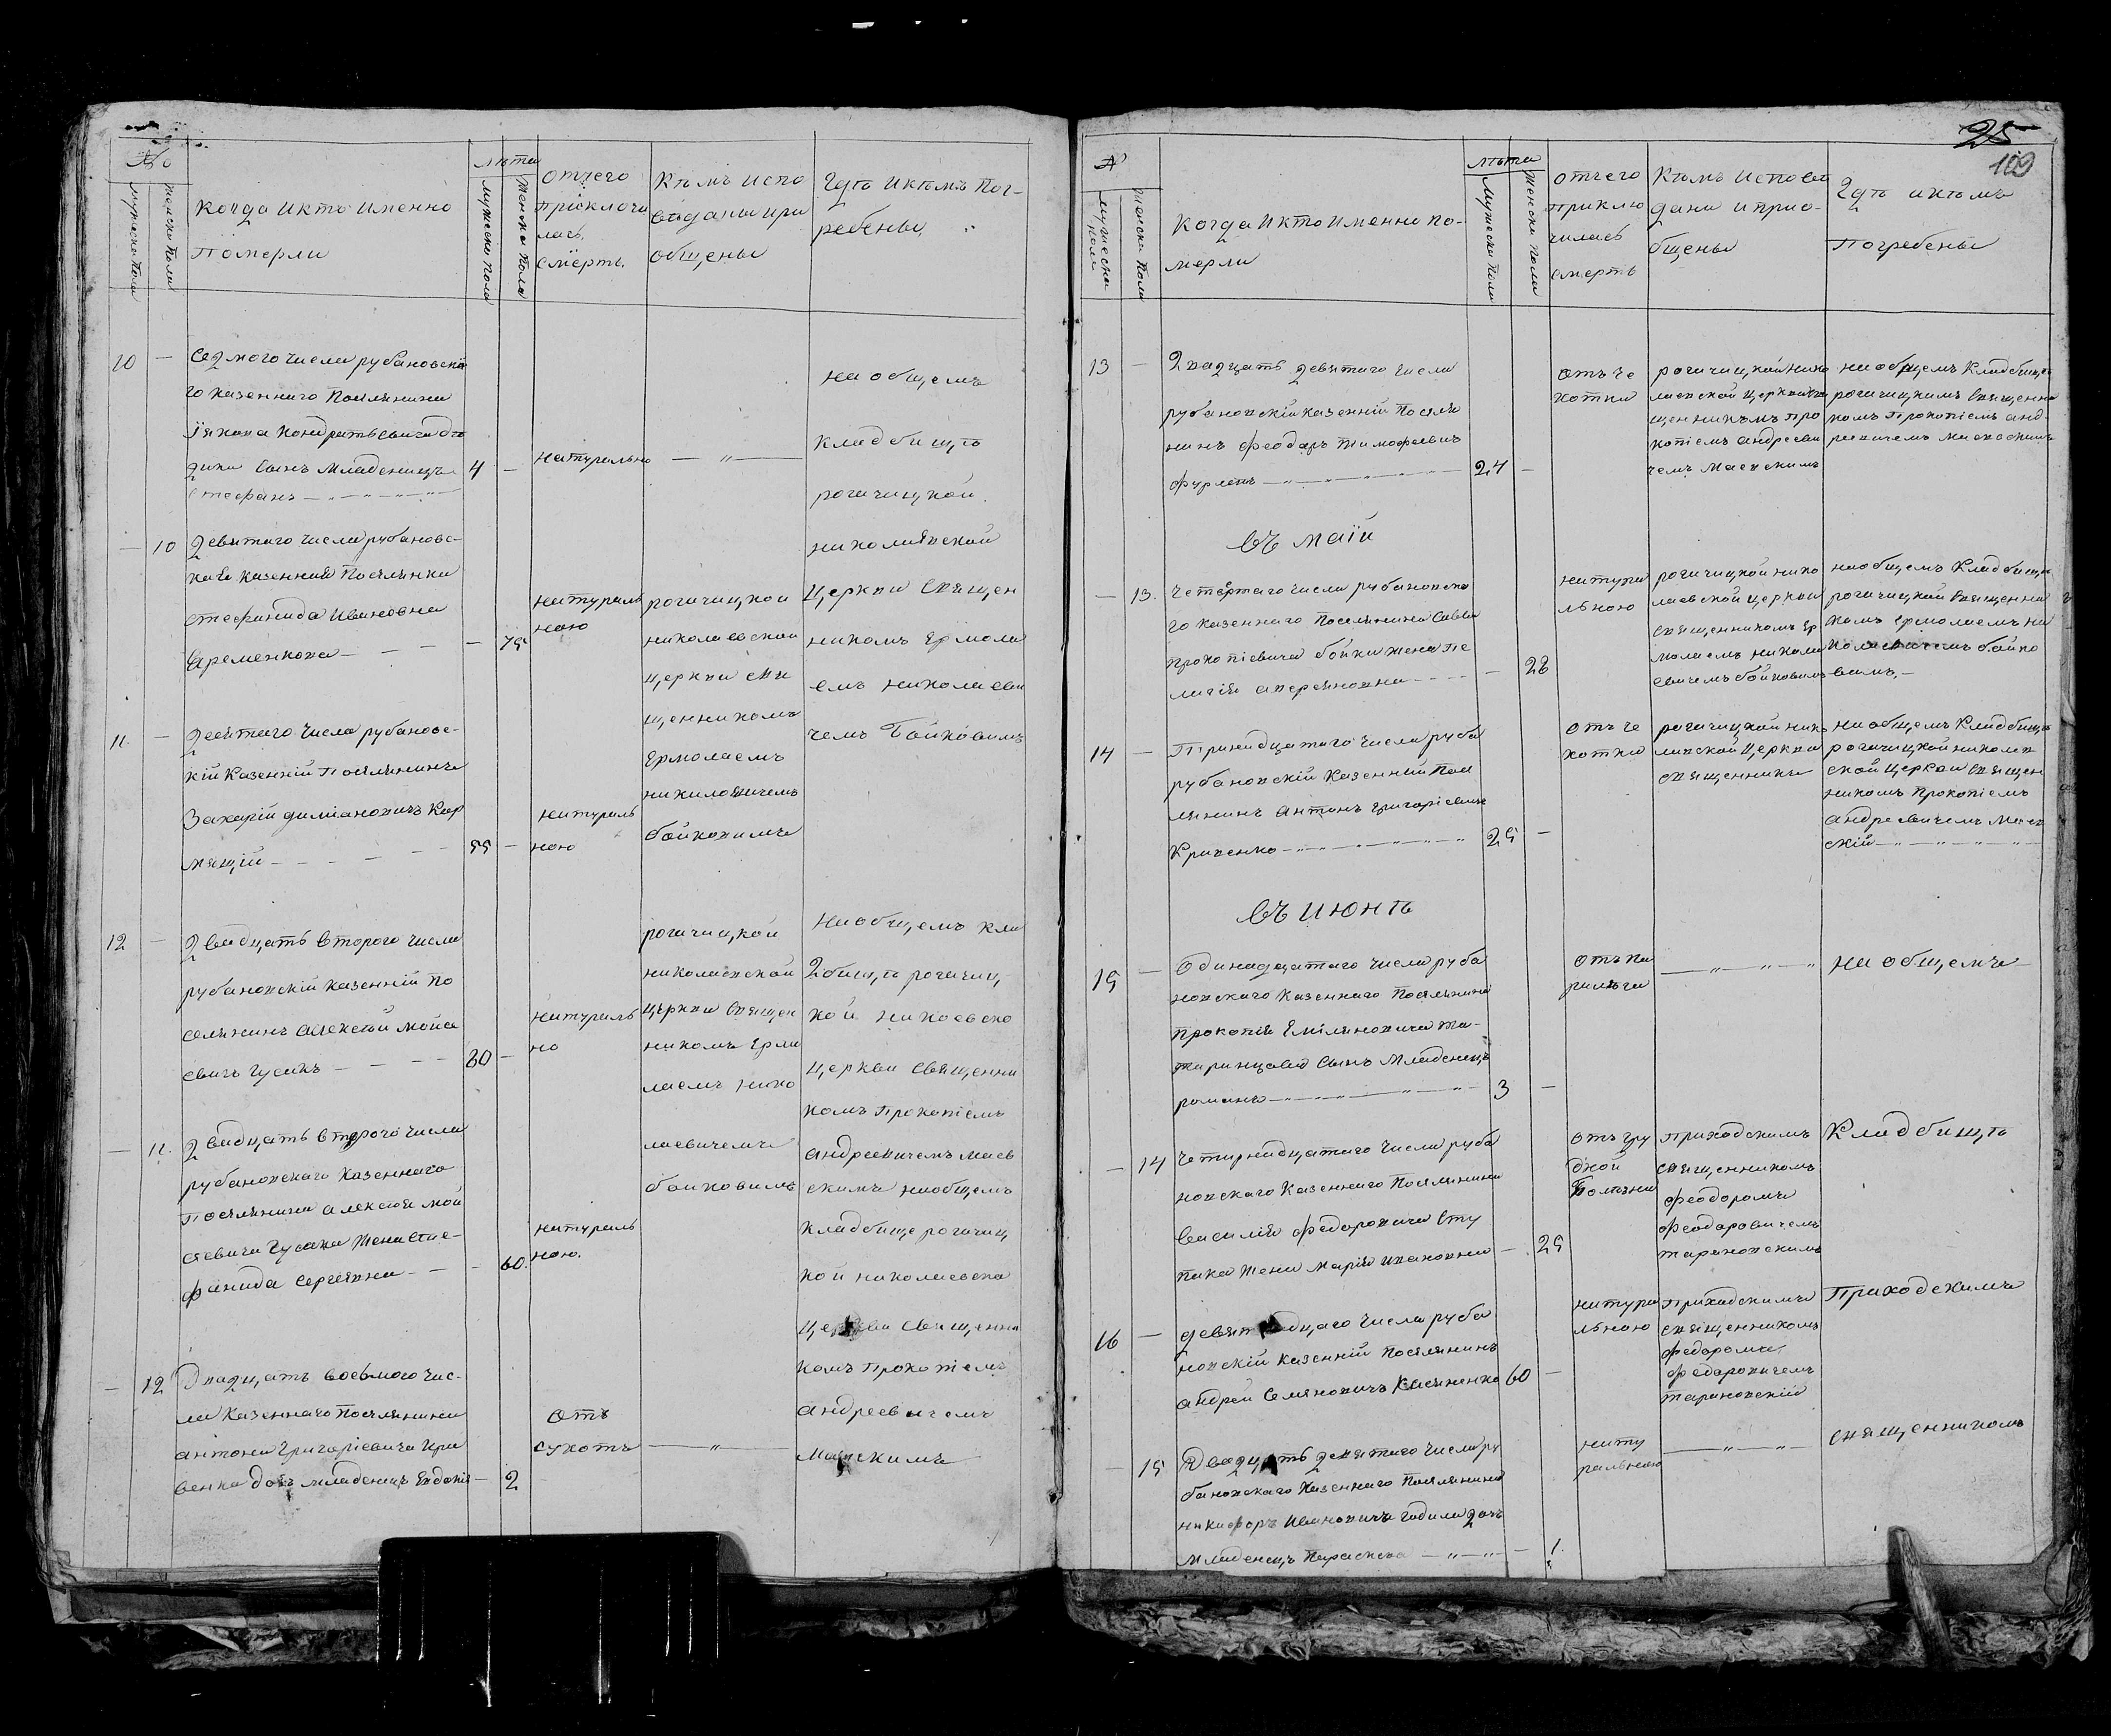 №
мужеска пола
женска пола
когда и кто именно
померли
лѣта
мужеска пола
женска пола
отчего
приключи
лась
смерть.
Кѣмъ испо
веданы и при
общены
Гдѣ и кѣмъ пог-
ребены
10 —
Седмого числа рубановска
го казеннаго Поселянина
Іякова Кондратьевича
сынъ Младенецъ 4 —
Стефанъ
натурально
— " —
на общемъ
кладбищѣ
рогачицкой
николаевской
церкви священ
никомъ Ермола
емъ николаеви
чемъ Бойковимъ
— 10
Девятаго числа рубановс-
кая казенная Поселянка
Стефанида Ивановна
Яременкова — 75
натураль
ною
рогачицкои
николаевскои
церкви свя
щенникомъ
Ермолаемъ
николаевичемъ
бойковимъ
11. —
Десятаго числа рубановс-
кій Казенній Поселянинъ
Захарій диміановичъ Кор
мящій 55 —
натураль
ною
12 —
Двадцать второго числа
рубановскій казенній по
селянинъ алексѣй мойсе
евичъ Гусакъ 80 —
натураль
но
рогачицкой
николаевской
церкви священ
никомъ Ермо
лаемъ нико
лаевичемъ
бойковимъ
на общемъ кла
дбищѣ рогачиц
кой никоевско
церкви священни
комъ Прокопіемъ
андреевичемъ маев
скимъ на общемъ
кладбище рогачиц
кой николаевска
церкви священни
комъ прокопіемъ
андреевичемъ
Маевскимъ
— 11.
Двадцать второго числа
рубановскаго казеннаго
Поселянина алексѣя мой
сеевича Гусака жена Сте-
фанида Сергѣевна — 60.
натураль
ною.
— 12
Двадцать восьмого чис-
ла казеннаго Поселянина
антона Григоріевича Кри
венка дочь младенецъ Евдокія — 2
отъ
сухотъ
— " —
25
109
№
мужеска пола
женска пола
Когда и кто именно по-
мерли
лѣта
мужеска пола
женска пола
отчего
приклю
чилась
смерть
Кѣмъ исповѣ
дани и прио-
бщены
Гдѣ и кѣмъ
Погребены
13 —
Двадцать девятаго числа
рубановскій казенній Поселя
нинъ Феодоръ Тимофеевичъ
Фурленъ 24 —
отъ че
хотки
рогачицкой нико
лаевской церкви свя
щенникъмъ про
копіемъ андрееви
чемъ Маевскимъ
на общемъ Кладбищѣ
рогачицкимъ священни
комъ Прокопіемъ анд-
реевичемъ маевскимъ
въ маіи
— 13.
Четвертаго числа рубановска
го казеннаго Поселянина Савы
Прокопіевича бойка жена пе
лагія аверяновна — 28
натура
льною
рогачицкой нико
лаевской церкви
священникомъ Ер
молаемъ никола
евичемъ бойковимъ
на общемъ Кладбищѣ
рогачицкой священни
комъ Ермолаемъ ни
колаевичемъ бойко
вимъ.—
14 —
Тринадцатаго числа руба
рубановскій казенный Посе
лянинъ Антонъ Григоріевичъ
Кривенко 25 —
отъ че
хотки
рогачицкой нико
лаевской Церкви
священникъ
на общемъ Кладбищѣ
рогачицкой николаев
ской церкви священ
никомъ Прокопіемъ
андреевичемъ Маев
скій
въ июнѣ
15 —
Одинадцатаго числа руба
новскаго казеннаго Поселянина
прокопія Еміляновича та-
таринцова сынъ Младенецъ
романъ 3 —
отъ па
ралича
— " — " —
на общемъ
— 14
Четирнадцатаго числа руба
новскаго казеннаго Поселянина
василія федоровича сту
пака жена Марія ивановна — 25
отъ гру
дной
болѣзни
приходскимъ
священникомъ
Феодоромъ
феодоровичемъ
тарановскимъ
Кладбищѣ
16 —
девятнадцаго числа руба
новскій казенній Поселянинъ
андрей Семяновичъ Касяненко 60 —
натура
льною
приходскимъ
священникомъ
федоромъ
федоровичемъ
тарановскій
Приходскимъ
— 15
Двадцать девятаго числа ру
бановскаго казеннаго Поселянина
никифоръ Ивановича Гадила дочь
младенецъ Параскева — 1.
нату
ральною
— " — " —
священникомъ